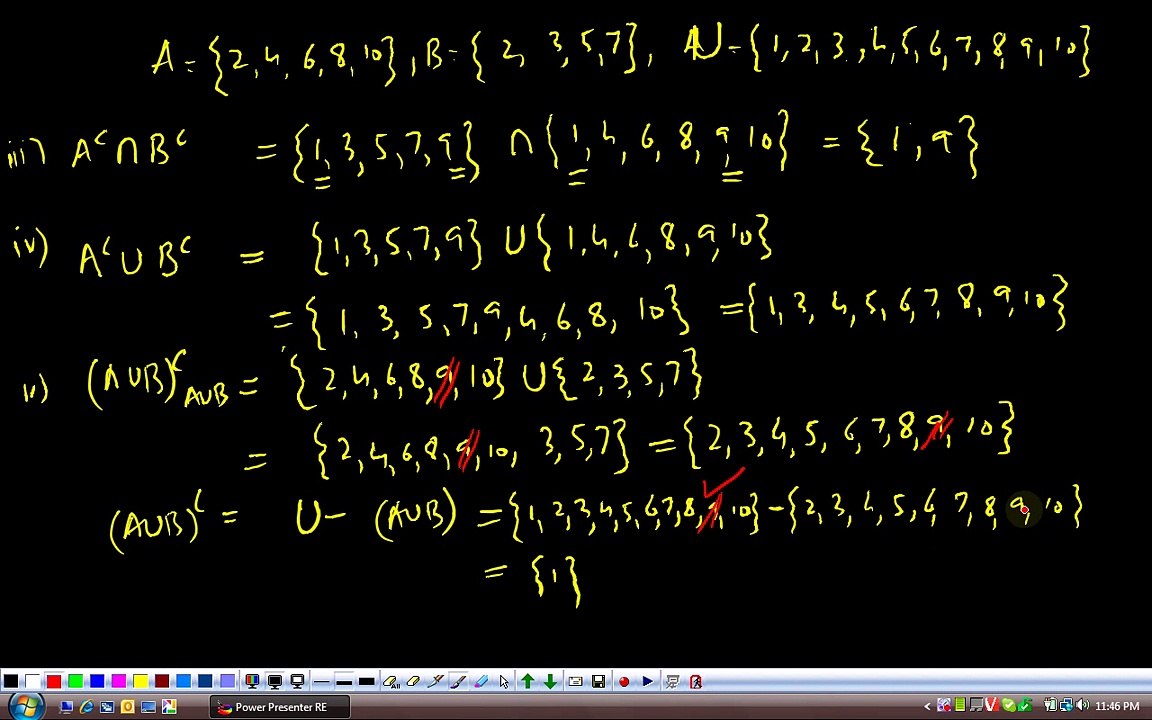 A = {2, 4, 6, 8, 10}, B = { 2, 3, 5, 7}, U = {1, 2, 3, 4, 5, 6, 7, 8, 9, 10}
iii) Aᶜ ∩ Bᶜ = {1, 3, 5, 7, 9} ∩ {1, 4, 6, 8, 9, 10} = {1, 9}
iv) Aᶜ ∪ Bᶜ = {1, 3, 5, 7, 9} ∪ {1, 4, 6, 8, 9, 10}
= {1, 3, 5, 7, 9, 4, 6, 8, 10} = {1, 3, 4, 5, 6, 7, 8, 9, 10}
v) (A∪B)ᶜ A∪B = {2, 4, 6, 8, 9, 10} ∪ {2, 3, 5, 7}
= {2, 4, 6, 8, 9, 10, 3, 5, 7} = {2, 3, 4, 5, 6, 7, 8, 9, 10}
(A∪B)ᶜ = U − (A∪B) = {1, 2, 3, 4, 5, 6, 7, 8, 9, 10} − {2, 3, 4, 5, 6, 7, 8, 9, 10}
= {1}
Power Presenter RE
11:46 PM